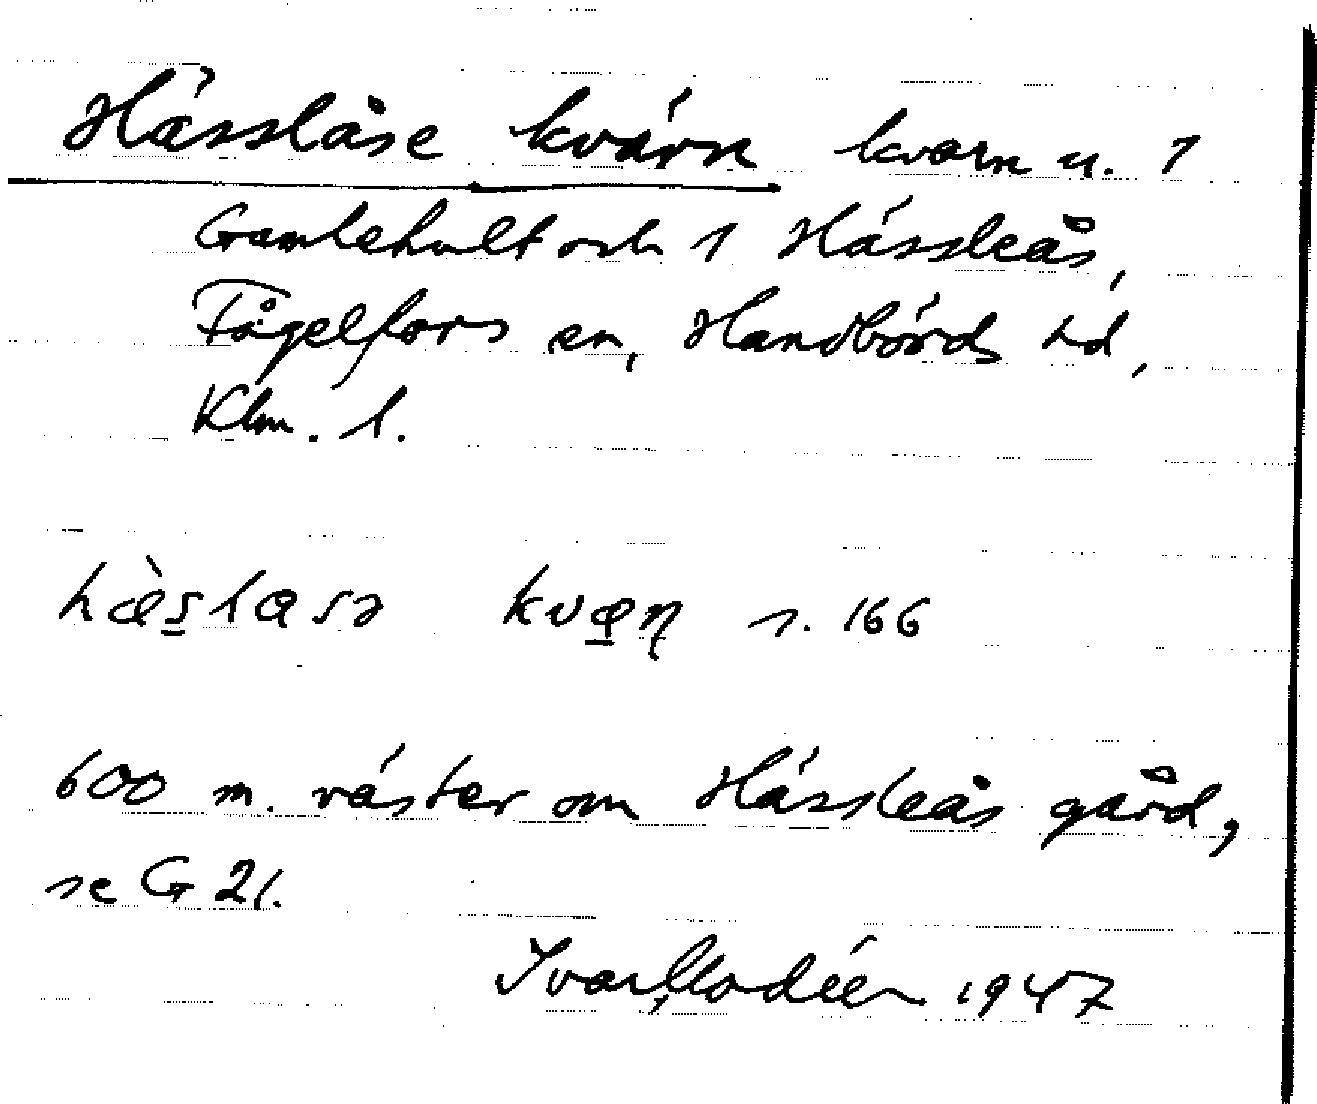 Hässlåse kvärn kvarn u. 1
Gamlehult och 1 Hässleås,
Fågelfors sn, Handbörds hd,
Klm. l.
hæ̀s̲lasə kvæ̲ɳ s. 166
600 m. väster om Hässleås gård,
se G 21.
Ivar Modéer 1947